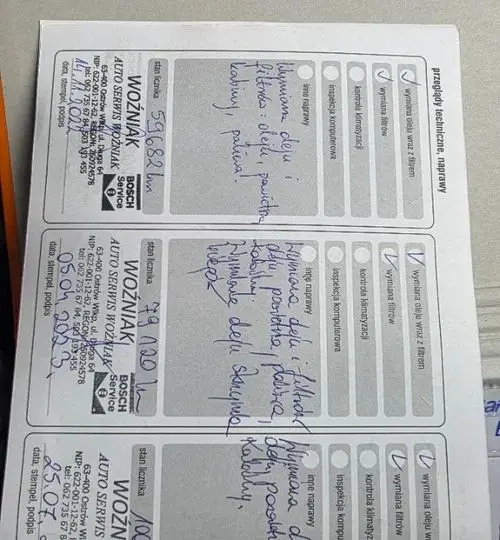 przeglądy techniczne, naprawy
wymiana oleju wraz z filtrem
wymiana filtrów
kontrola klimatyzacji
inspekcja komputerowa
inne naprawy
Wymiana oleju i
filtrów: oleju, powietrza,
kabiny, paliwa!
stan licznika 59682 km
WOŹNIAK
AUTO SERWIS WOŹNIAK
BOSCH
Service
63-400 Ostrów Wlkp. ul. Długa 64
NIP: 622-001-12-62, REGON: 250924578
data, stempel, podpis
wymiana oleju wraz z filtrem
wymiana filtrów
kontrola klimatyzacji
inspekcja komputerowa
inne naprawy
Wymiana oleju i filtrów
oleju, powietrza, paliwa,
kabiny
Wymiana oleju skrzynia
stan licznika 79120 km
WOŹNIAK
AUTO SERWIS WOŹNIAK
BOSCH
Service
63-400 Ostrów Wlkp. ul. Długa 64
NIP: 622-001-12-62, REGON: 250924578
05.04.2023
data, stempel, podpis
wymiana oleju w
wymiana filtrów
kontrola klimatyz
inspekcja kompu
inne naprawy
Wymiana
kabiny.
stan licznika 100
WOŹN
AUTO SERWIS
63-400 Ostrów W
NIP: 622-001-12-62,
tel: 062 735 67 8
25.07
data, stempel, podpis